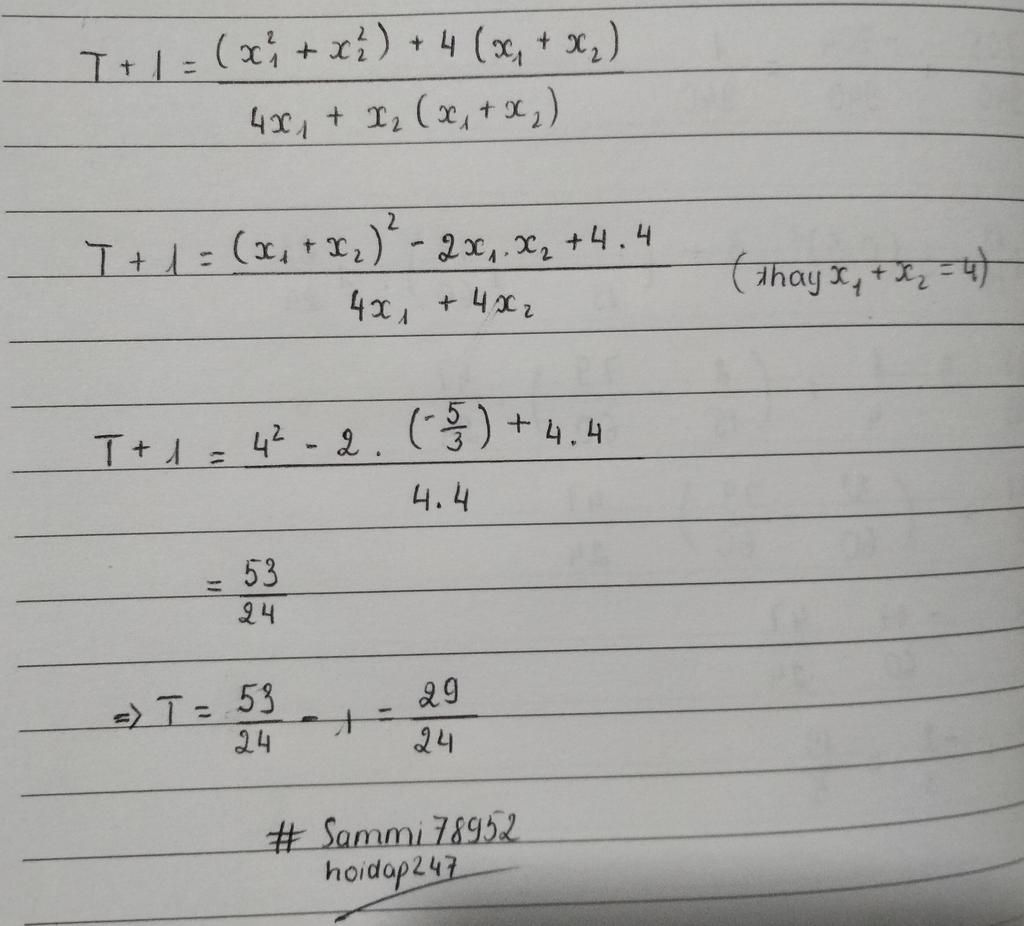 T + 1 = (x₁² + x₂²) + 4 (x₁ + x₂)
4x₁ + x₂ (x₁ + x₂)
T + 1 = (x₁ + x₂)² - 2x₁.x₂ + 4.4
4x₁ + 4x₂
(thay x₁ + x₂ = 4)
T + 1 = 4² - 2. (-5/3) + 4.4
4.4
= 53/24
=> T = 53/24 - 1 = 29/24
# Sammi78952
hoidap247